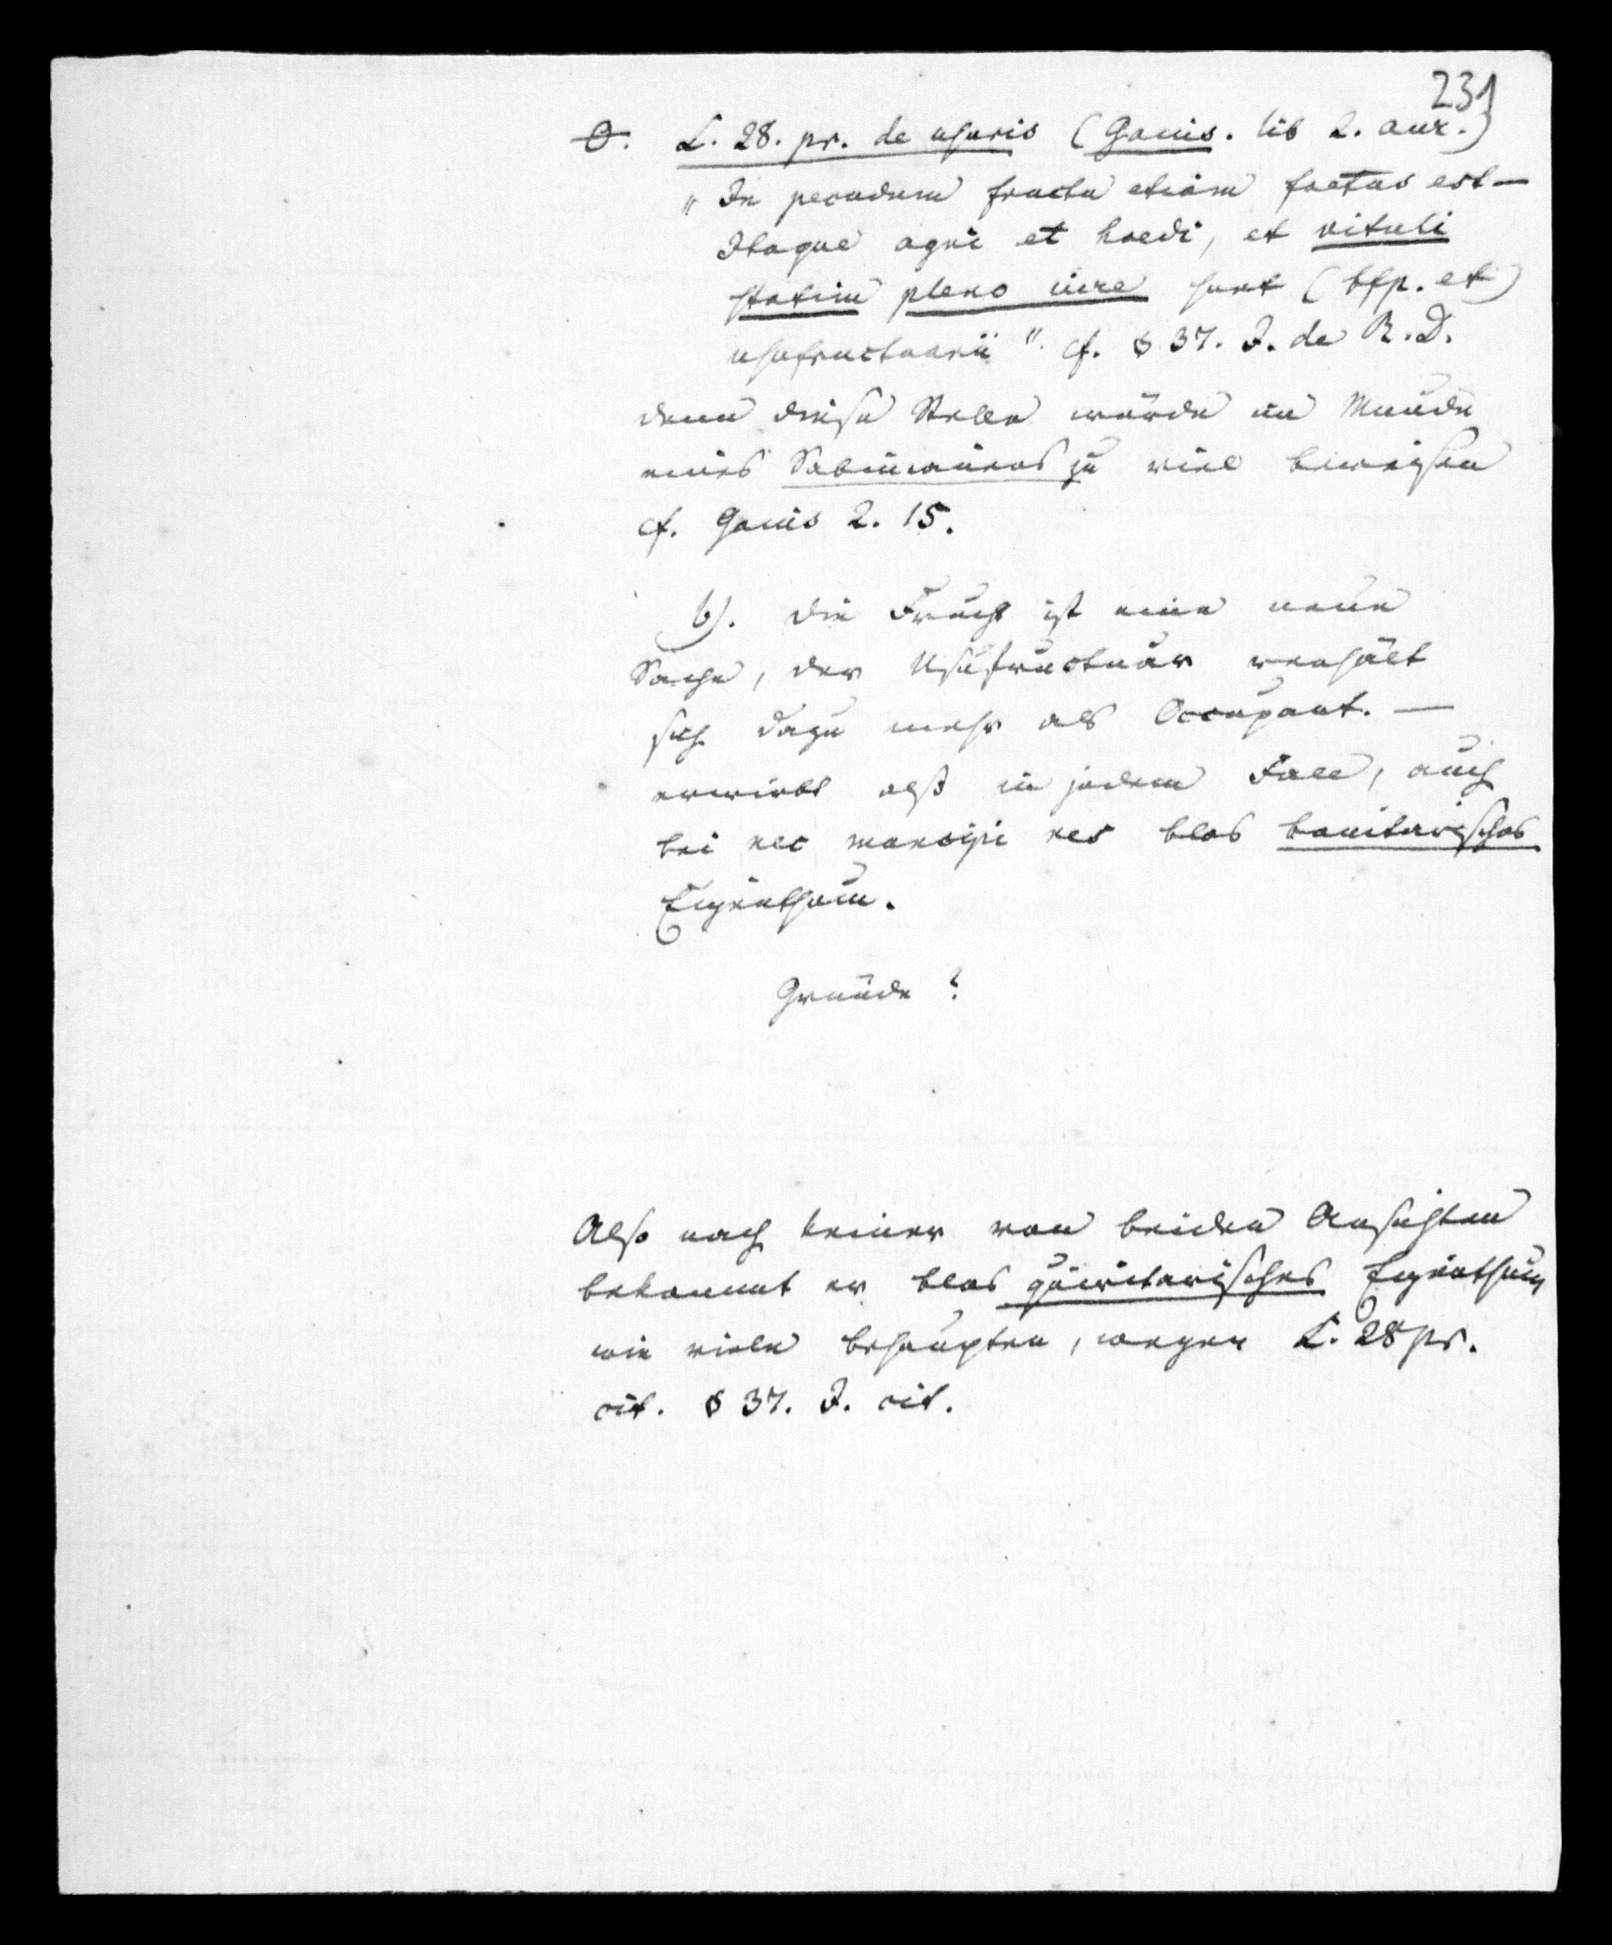 231
O. L. 28. pr. de usuris (Gaius. lib 2. aur.)
„In pecudum fructu etiam foetus est —
Itaque agni et hoedi, et vituli
statim pleno iure sunt (bfp. et)
usufructuarii". cf. § 37. I. de R. D.
denn diese Stelle würde im Munde
eines Sabinianers zu viel beweisen
cf. Gaius 2. 15.
b). die Frucht ist eine neue
Sache, der Usufructuar verhält
sich dazu mehr als Occupant. —
erwirbt also in jedem Falle, auch
bei nec mancipi res blos bonitarisches
Eigenthum.
Gründe?
Also nach keiner von beiden Ansichten
bekommt er blos quiritarisches Eigenthum
wie viele behaupten, wegen L. 28 pr.
cit. § 37. I. cit.